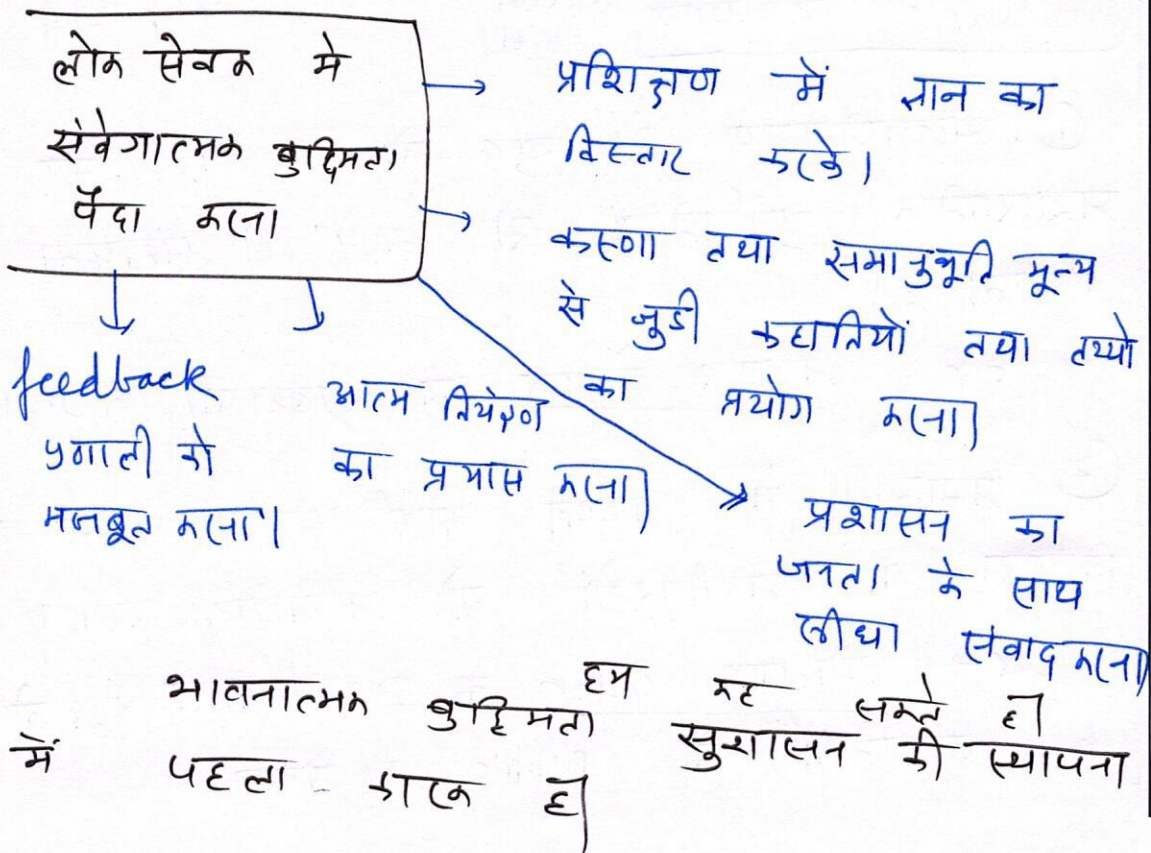 लोक सेवक मे
संवेगात्मक बुद्धिमता
पैदा करना
प्रशिक्षण में ज्ञान का
विस्तार करके।
करुणा तथा समानुभूति मूल्य
से जुडी कहानियों तथा तथ्यो
का प्रयोग करना।
feedback
प्रणाली को
मजबूत करना।
आत्म नियंत्रण
का प्रयास करना।
प्रशासन का
जनता के साथ
सीधा संवाद करना।
हम कह सकते है।
भावनात्मक बुद्धिमता सुशासन की स्थापना
में पहला कारक है।